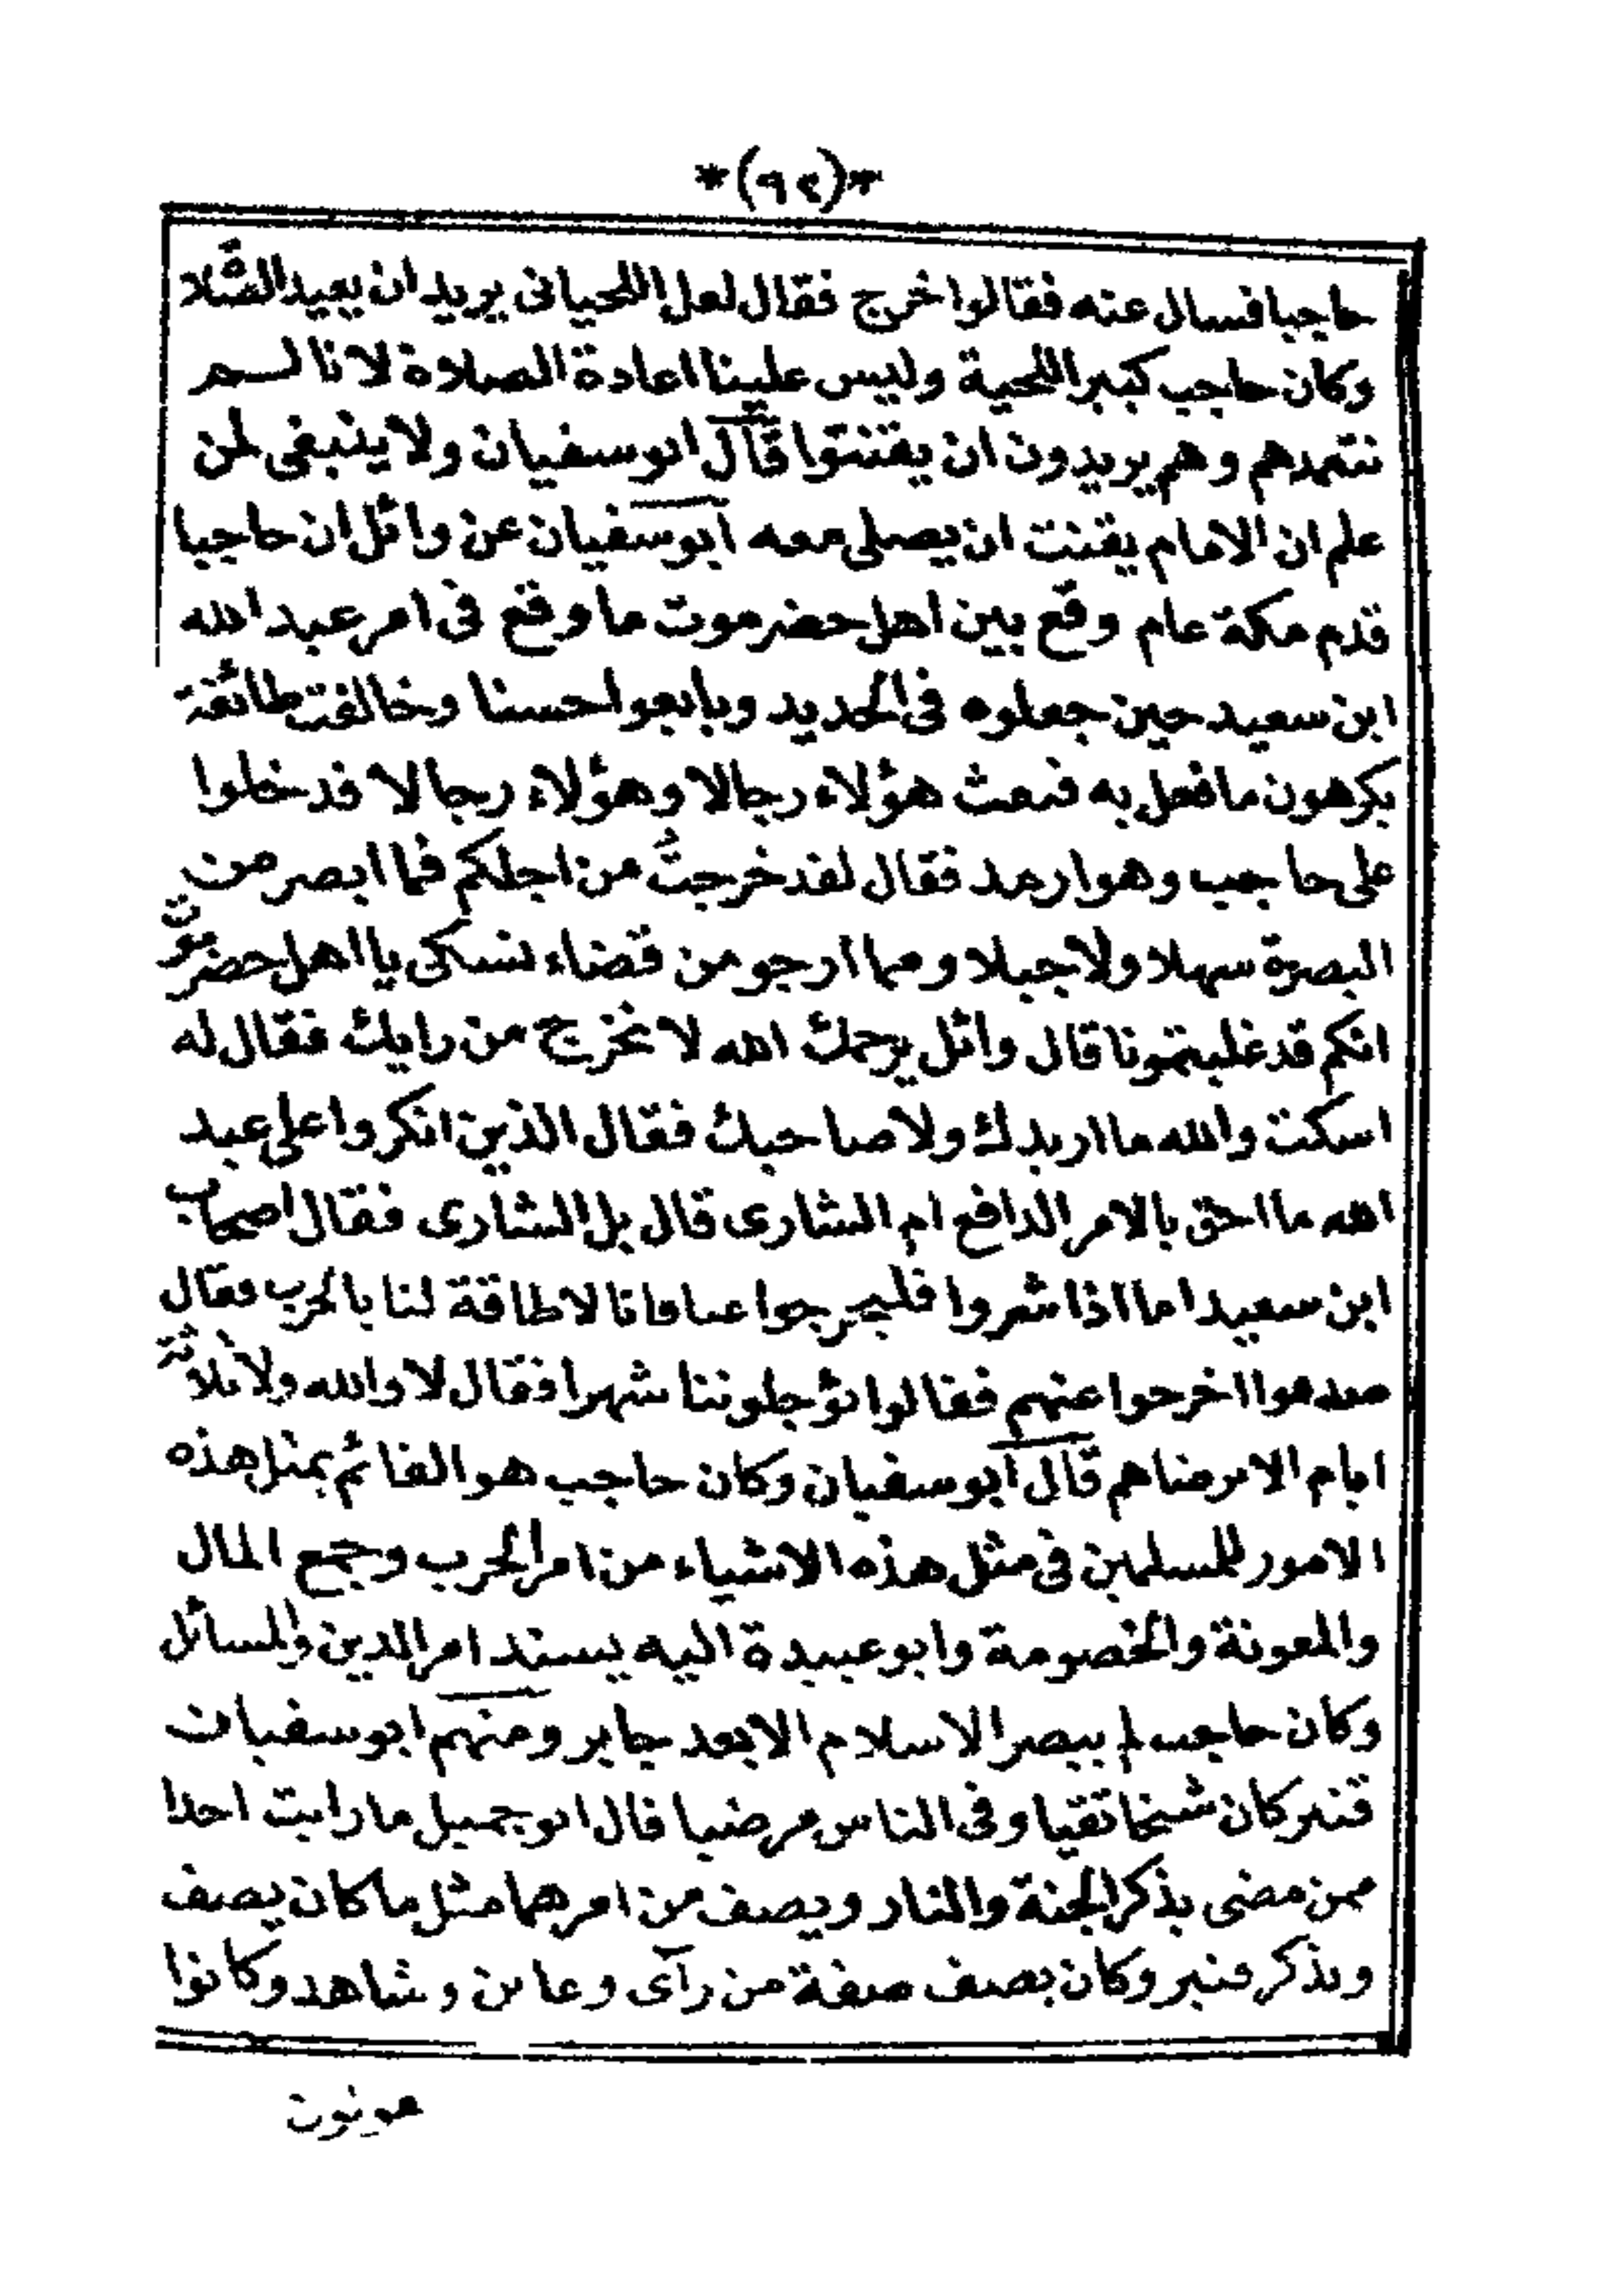 *(٩٢)*
حاجبا فسال عنه فقالوا خرج فقال لعل اللحيانى يريد ان يعيد الصّلاة
وكان حاجب كبير اللحية وليس علينا اعادة الصلاة لانا لسم
نتعمدهم وهم يريدون ان يقنتوا قال ابو سفيان ولا ينبغى لمن
علم ان الامام يقنت ان يصلى معه ابو سفيان عن وائل ان حاجبا
قدم مكة عام وقع بين اهل حضرموت ما وقع فى امر عبد الله
ابن سعيد حين جعلوه فى الحديد وبايعوا حسنا وخالفت طائفة
يكرهون ما فعل به فبعث هؤلاء رجالا وهؤلاء رجالا فدخلوا
على حاجب وهو ارمد فقال لقد خرجتُ من اجلكم فما ابصر من
البصرة سهلا ولا جبلا ومما ارجو من قضاء نسكى يا اهل حضرموت
انكم قد غلبتمونا قال وائل يرحمك الله لا تخرج من رايك فقال له
اسكت والله ما اريدك ولا صاحبك فقال الذين انكروا على عبد
الله ما احق بالامر الدافع ام الشارى قال بل الشارى فقال اصحاب
ابن سعيد اما اذا شروا فليخرجوا عنا فانا لا طاقة لنا بالحرب فقال
صدقوا اخرجوا عنهم فقالوا تؤجلوننا شهرا فقال لا والله ولا ثلاثة
ايام الا برضاهم قال ابو سفيان وكان حاجب هو القائم بمثل هذه
الامور للمسلمين فى مثل هذه الاشياء من امر الحرب وجمع المال
والمعونة والخصومة وابو عبيدة اليه يسند امر الدين والمسائل
وكان حاجب لم يبصر الاسلام الا بعد جابر ومنهم ابو سفيان
قنبر كان شيخا تقيا وفى الناس مرضيا قال ابو جميل ما رايت احدا
ممن مضى يذكر الجنة والنار ويصف من امرهما مثل ما كان يصف
ويذكر قنبر وكان يصف صفة من رآى وعاين وشاهد وكانوا